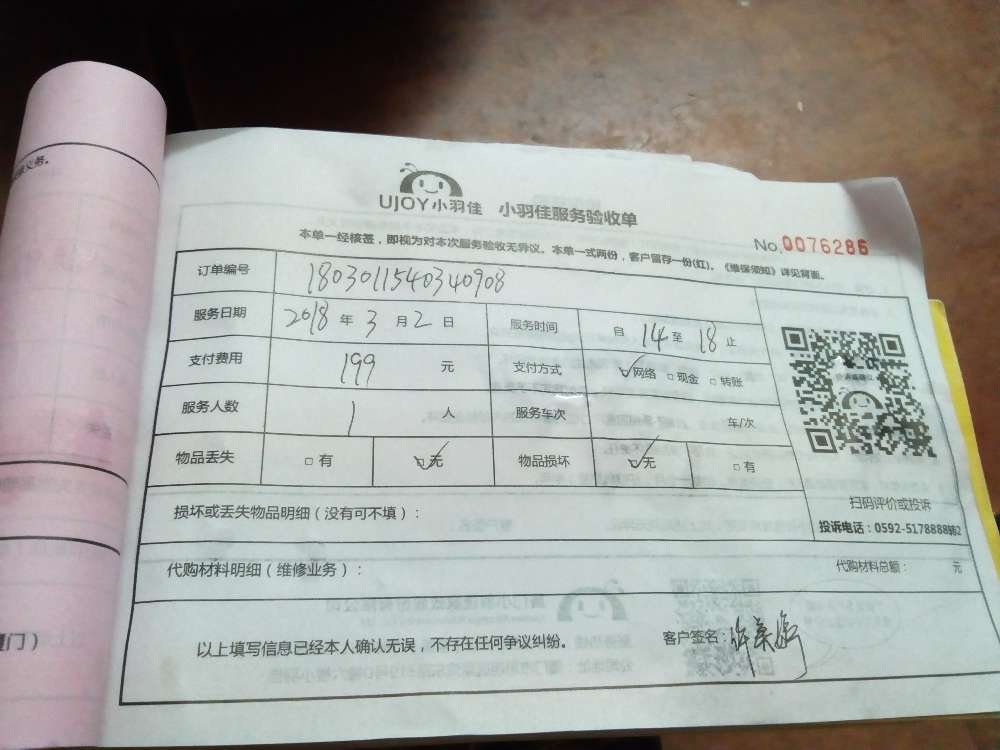 UJOY小羽佳 小羽佳服务验收单
本单一经核签，即视为对本次服务验收无异议。本单一式两份，客户留存一份(红)。《维保须知》详见背面。
No.0076286
订单编号 1803011540340908
服务日期 2018 年 3 月 2 日 服务时间 自 14 至 18 止
支付费用 199 元 支付方式 网络 现金 转账
服务人数 1 人 服务车次 车/次
物品丢失 有 无 物品损坏 无 有
扫码评价或投诉
投诉电话：0592-5178888转2
损坏或丢失物品明细（没有可不填）：
代购材料明细（维修业务）： 代购材料总额： 元
以上填写信息已经本人确认无误，不存在任何争议纠纷。 客户签名：
门）